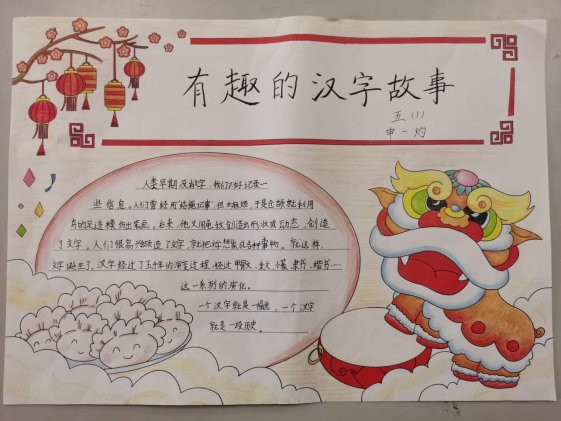 有趣的汉字故事
五(1)
申一灼
人类早期没有文字，他们不好记录一
些信息。人们曾经用"结绳记事"，但太麻烦，于是仓颉就利用
鸟的足迹模仿出来画。后来，他又用龟纹创造出形状或动态，创造
了文字。人们很 了文字，字 把 想象成各种事物。就这样，
文字诞生了，汉字经过了五千年的演变过程，经过甲骨文、金文、小篆、隶书、楷书……
这一系列的演化。
一个汉字就是一幅画，一个汉字
就是一段历史。